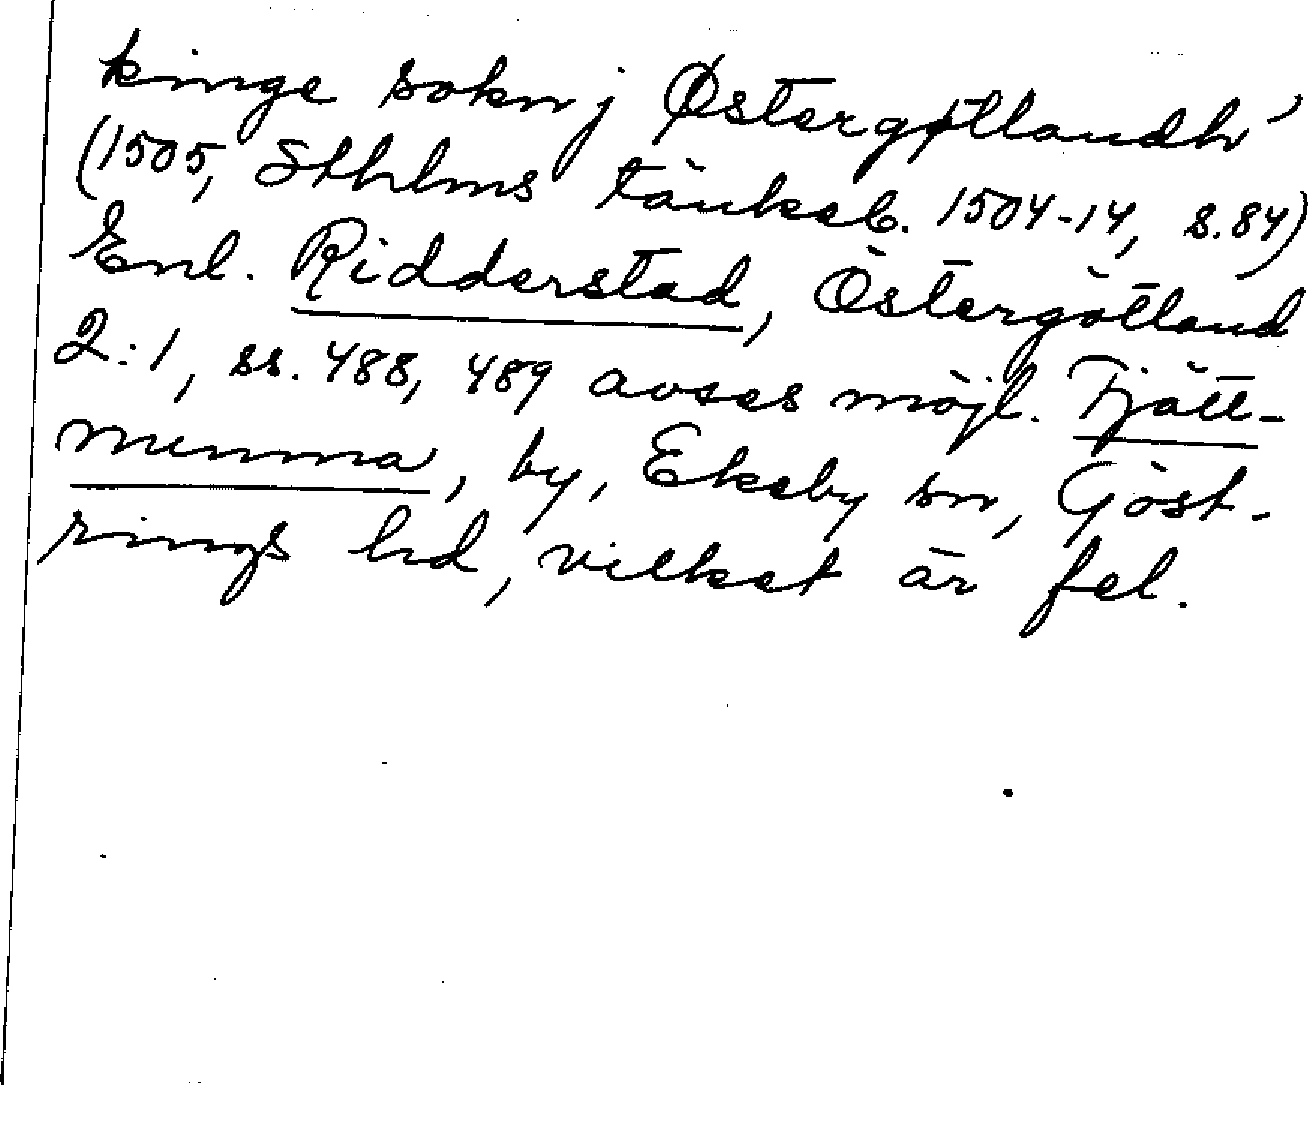 kinge sokn j Østergøtlandh'
(1505, Sthlms tänkeb. 1504-14, s. 84)
Enl. Ridderstad, Östergötland
2:1, ss. 488, 489 avses möjl. Fjätt-
munna, by, Ekeby sn, Göst-
rings hd, vilket är fel.